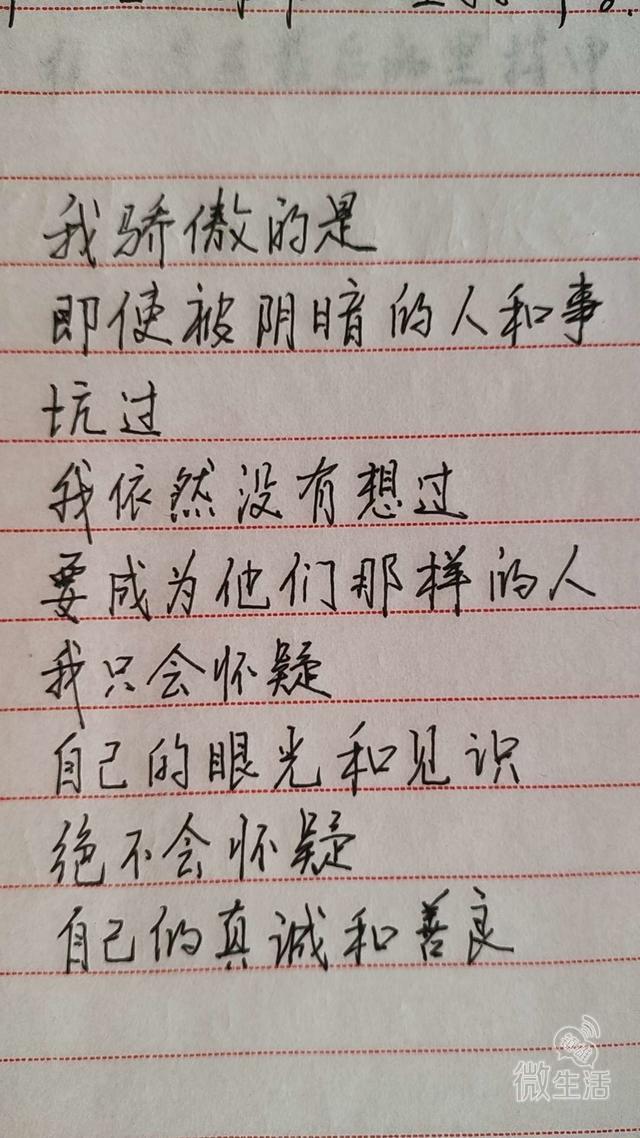 我骄傲的是
即使被阴暗的人和事
坑过
我依然没有想过
要成为他们那样的人
我只会怀疑
自己的眼光和见识
绝不会怀疑
自己的真诚和善良
微生活